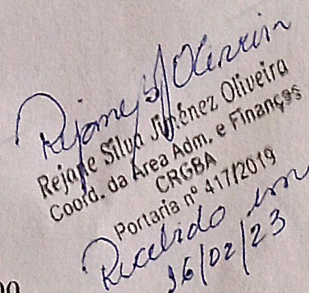 Rejane S Oliveira
Rejane Silva Jiménez Oliveira
Coord. da Área Adm. e Finanças
CRGBA
Portaria nº 417/2019
Recebido em
26/02/23